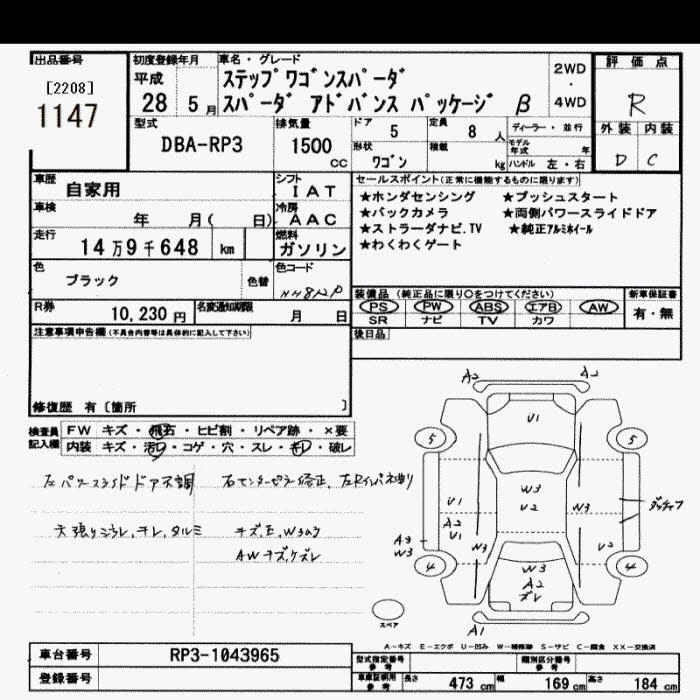 出品番号
[2208]
1147
初度登録年月
平成
28 5 月
車名・グレード
ステップワゴンスパーダ
スパーダ アドバンス パッケージ β
2WD
・
4WD
評価点
R
外装 内装
D C
型式
DBA-RP3
排気量
1500 cc
ドア 5
定員 8 人
形状 ワゴン
積載 kg
ディーラー・並行
モデル年式 年
ハンドル 左・右
車歴 自家用
シフト
IAT
車検 年 月( 日)
冷房
AAC
走行 14万9千648 km
燃料
ガソリン
色 ブラック
色替
色コード
R券 10,230 円
名変通知期限 月 日
セールスポイント(正常に機能するものに限ります)
★ホンダセンシング ★プッシュスタート
★バックカメラ ★両側パワースライドドア
★ストラーダナビ.TV ★純正アルミホイール
★わくわくゲート
装備品 (純正品に限り○をつけてください)
新車保証書
PS PW ABS エアB AW
SR ナビ TV カワ
有・無
後日品
注意事項申告欄(不具合内容等は具体的に記入して下さい)
修復歴 有〔箇所 〕
検査員記入欄
FW キズ・飛石・ヒビ割・リペア跡・×要
内装 キズ・汚レ・コゲ・穴・スレ・キレ・破レ
左パワースライドドア不調
右センターピラー修正、左Rインパネ曲り
天張りヨゴレ、キレ、タルミ
キズ,E,Wあり
AWキズ,ケズレ
A2 A2
U1
5 5
W3
U2
U1
A2
U1
W3
W3
A3
W3
U2
4 4
W3
A2
ズレ
A1
スペア
A-キズ E-エクボ U-凹み W-補修跡 S-サビ C-腐食 XX-交換済
車台番号 RP3-1043965
登録番号
型式指定番号 参考
類別区分番号 参考
車庫証明用 参考
長さ 473 cm
幅 169 cm
高さ 184 cm